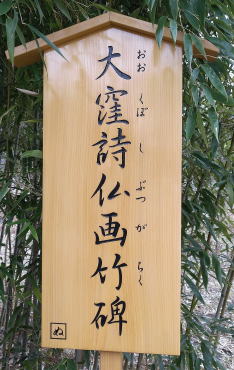 大窪詩仏画竹碑
おおくぼしぶつがちく
ぬ